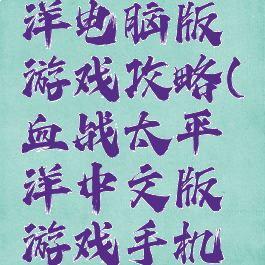 洋电脑版
游戏攻略(
血战太平
洋中文版
游戏手机